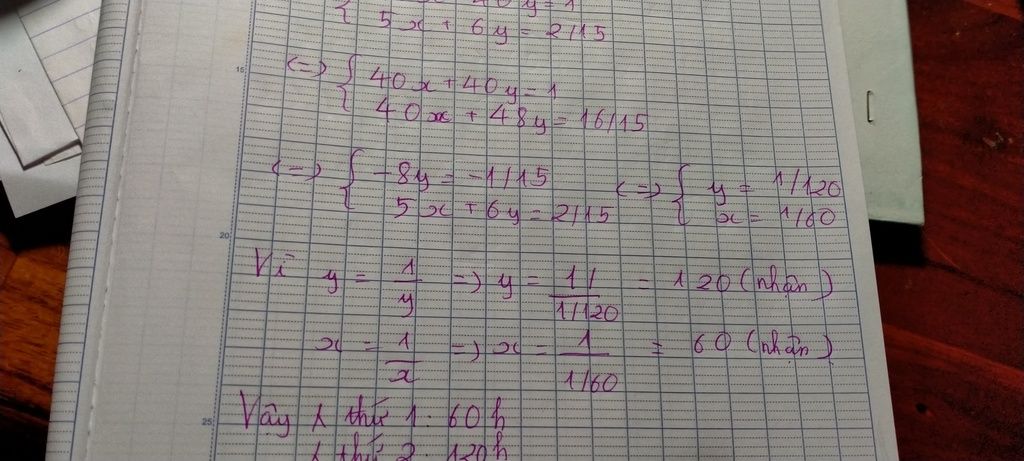 40y = 1
5x + 6y = 2/15
15
<=> { 40x + 40y = 1
40x + 48y = 16/15
<=> { -8y = -1/15 <=> { y = 1/120
5x + 6y = 2/15 x = 1/60
20
Vì y = 1/y => y = 1/ / 1/120 = 120 (nhận)
x = 1/x => x = 1 / 1/60 = 60 (nhận)
25
Vậy λ thứ 1: 60h
λ thứ 2: 120h